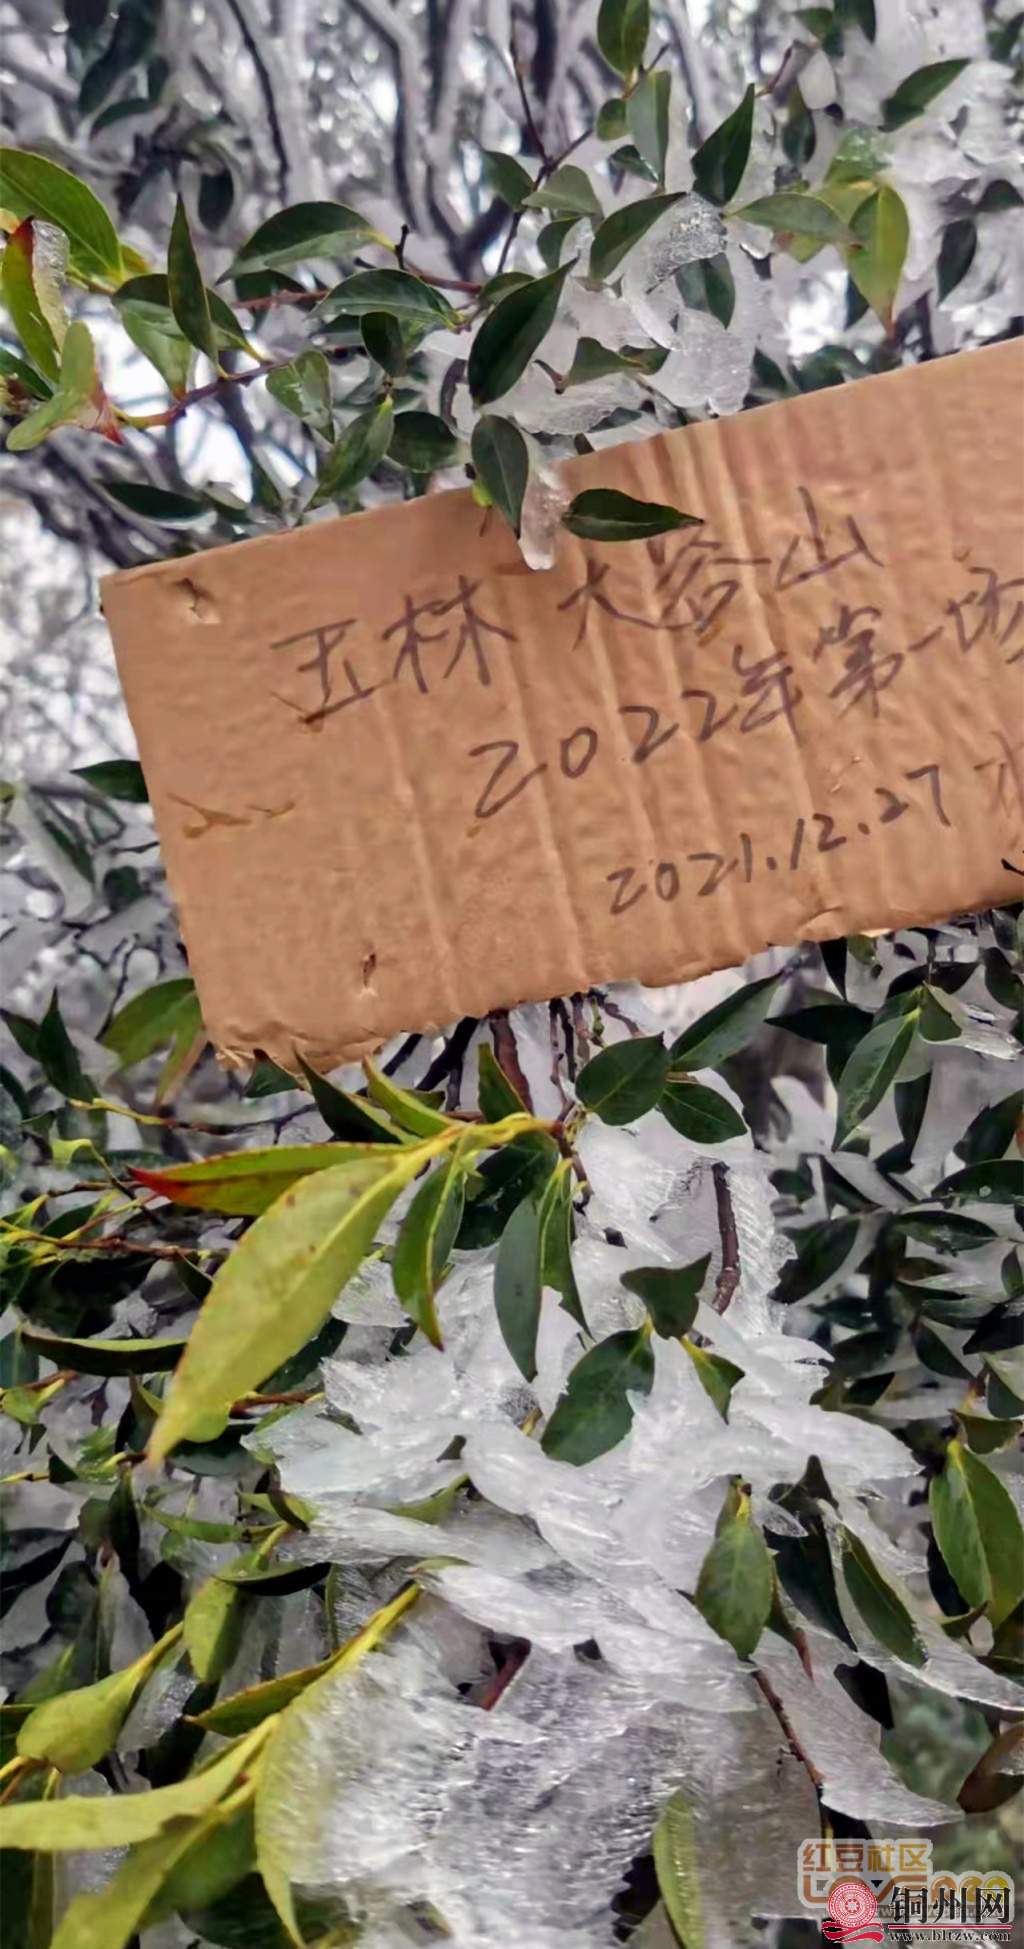 玉林大容山
2022年第一场
2021.12.27
红豆社区
铜州网
www.bltzw.com